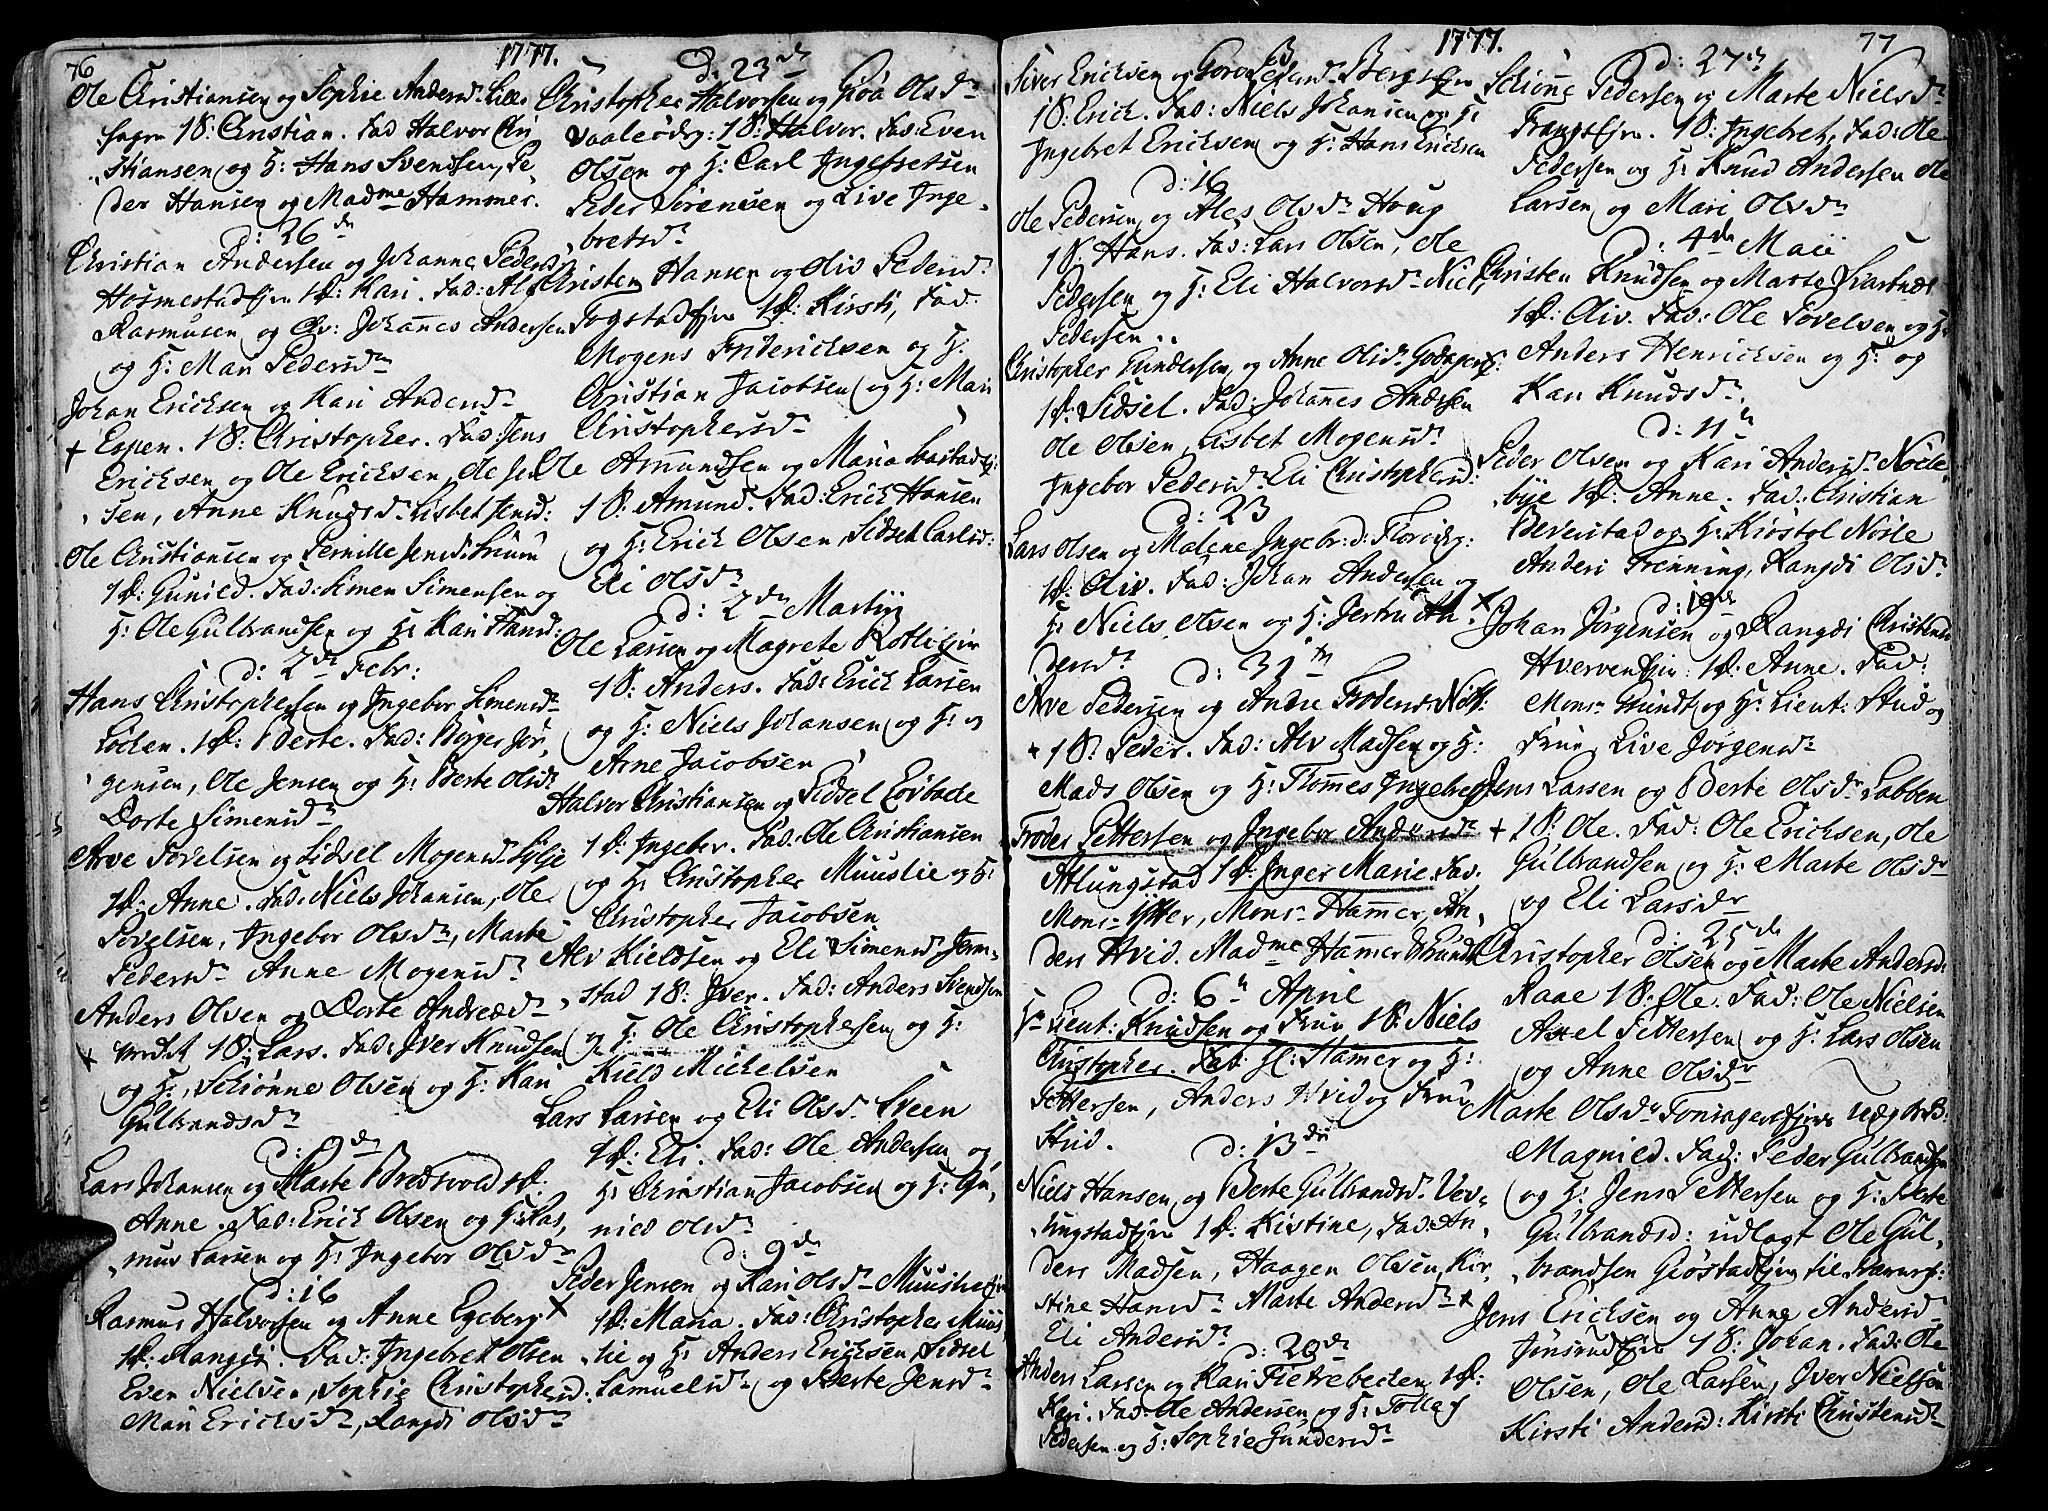 76
1777.
Ole Christiansen og Sophie Andersd. Lille
1B: Christian. Fad Halvor Chri
stiansen og H: Hans Svendsen, Pe
der Hansen og Madme Hammer.
d: 26 de
Christian Andersen og Johanne Pedersd.
1P: Kari. Fad: Alf
Rasmusen og Johannes Andersen
og H: Mari Pedersdr
Johan Ericksen og Kari Andersdr
+ Espen. 1B: Christopher. Fad: Jens
Ericksen og Ole Ericksen, Ole Jen
sen, Anne Knudsd. Lisbet Jensd:
Ole Christiansen og Pernille Jensd:
1P: Gunild. Fad: Simen Simensen og
H: Ole Gulbrandsen og H: Kari Hansd:
d: 2de Febr:
Hans Christophersen og Ingebor Simensdr
Loden. 1P: Berte. Fad: Børger Jør
gensen, Ole Jensen og H: Berte Olsdr
Dorte Simensdr
Arve Tovelsen og Sidsel Mogensd. Lylje
1P: Anne. Fad: Niels Johansen, Ole
Tovelsen, Ingebor Olsdr, Marte
Pedersdr Anne Mogensdr
Anders Olsen og Dorte Andreædr
+ 1B: Lars. Fad: Iver Knudsen
og H: Schiønne Olsen og H: Kari
Gulbrandsdr
d: 9de
Lars Johansen og Marte Bredsvold 1P:
Anne. Fad: Erich Olsen og H: Ras
mus Larsen og H: Ingebor Olsdr
d: 16
Rasmus Halvorsen og Anne Egeberg
1P: Rangdi. Fad: Ingebret Olsen
Even Nielsen, Sophie Christophersd:
Mari Ericksdr, Rangdi Olsdr
d: 23de
Christopher Halvorsen og Gioa Olsdr
1B: Halvor. Fad: Even
Olsen og H: Carl Ingebretsen
Peder Sørensen og Live Inge
bretsdr
Christen Hansen og Oliv Pedersd:
Togstadejer 1P: Kirsti, Fad:
Mogens Friderichsen og H:
Christian Jacobsen og H: Mari
Christophersdr
Ole Amundsen og Maria
1B: Amund. Fad: Erich Hansen
og H: Erich Olsen, Sidsel Carlsd:
Eli Olsdr
d: 2de Martij
Ole Larsen og Magrete
1B: Anders. Fad: Erich Larsen
og H: Niels Johansen og H: og
Arne Jacobsen
Halvor Christiansen og Sidsel
1P: Ingebor. Fad: Ole Christiansen
og H: Christopher Muuslie og H:
Christopher Jacobsen
Alv Kieldsen og Eli Simensd.
stad 1B: Iver. Fad: Anders Svendsen
og H: Ole Christophersen og H:
Kield Michelsen
Lars Larsen og Eli Olsd. Sveen
1P: Eli. Fad: Ole Andersen og
H: Christian Jacobsen og H: Gu
nied Olsdr
d: 9de
Peder Jensen og Kari Olsdr Muuslie
1P: Maria. Fad: Christopher Muus
lie og H: Anders Ericksen, Sidsel
Samuelsdr og Berte Jensdr
1777.
77
Siver Ericksen og Goro Pedersdr Berg
1B: Erich. Fad: Niels Johansen og H:
Ingebret Ericksen og H: Hans Ericksen
d: 16
Ole Pedersen og Ales Olsdr Houg
1B: Hans. Fad: Lars Olsen, Ole
Pedersen og H: Eli Halvorsdr Niels
Pedersen..
Christopher Gundersen og Anne Olsdr
1P: Sidsel. Fad: Johannes Andersen
Ole Olsen, Lisbet Mogensdr
Ingebor Pedersdr Eli Christophersd:
d: 23
Lars Olsen og Malene Ingebr: d:
1P: Oliv. Fad: Johan Andersen og
H: Niels Olsen og H: Jertru An
dersdr
d: 31te
Arve Pedersen og Andre
+ 1B: Peder. Fad: Alv Madsen og H:
Mads Olsen og H: Thomes Ingebretsen
Troder Pettersen og Ingebor Andersdr
Atlungstad 1P: Inger Marie. Fad.
Monsr Monsr Hammer, An
ders Hvid. Madme Hammer
d: 6te April
Hr Lieut: Knudsen og Frue 1B: Niels
Christopher. Fad. Hamer og H:
Pettersen, Anders Hvid og Frue
Stud.
d: 13de
Niels Hansen og Berte Gulbrandsd. Vev
lungstadejer 1P: Kistine, Fad: An
ders Madsen, Haagen Olsen, Kir
stine Hansdr Marte Andersdr
Eli Andersdr
d: 20de
Anders Larsen og Kari 1P:
Kari. Fad: Ole Andersen og H: Tollef
Pedersen og H: Sophie Gundersdr
d: 27de
Schiønne Pedersen og Marte Nielsdr
Frangsejer. 1B: Ingebret, Fad: Ole
Pedersen og H: Knud Andersen Ole
Larsen og Mari Olsdr
d: 4de Maii
Christen Knudsen og Marte
1P: Oliv. Fad: Ole Tovelsen og H:
Anders Henricksen og H: og
Kari Knudsdr
d: 11te
Peder Olsen og Kari Andersdr Nøcle
bye 1P: Anne. Fad: Christian
Beverstad og H: Kiøstol Nøsle
Anders Frenning, Rangdi Olsdr
d: 19de
Johan Jørgensen og Rangdi Christensd
Hvervenejer: 1P: Anne. Fad:
Monsr Grundt og Hr Lieut: Stud og
Frue, Live Jørgensdr
Jens Larsen og Berte Olsdr Labben
+ 1B: Ole. Fad: Ole Ericksen, Ole
Gulbrandsen og H: Marte Olsdr
og Eli Larsdr
d: 25de
Christopher Olsen og Marte Andersd:
Raae 1B: Ole. Fad: Ole Nielsen
Axel Pettersen og H: Lars Olsen
og Anne Olsdr
Marte Olsdr uægte B:
Magnild. Fad: Peder Gulbrandsen
og H: Jens Pettersen og H: Berte
Gulbrandsd: udlagt Ole Gul
brandsen Giøstadejer til Barnef:
Jens Ericksen og Anne Andersdr
1B: Johan. Fad: Ole
Olsen, Ole Larsen, Iver Nielsen
Kirsti Andersd: Kirsti Christensdr